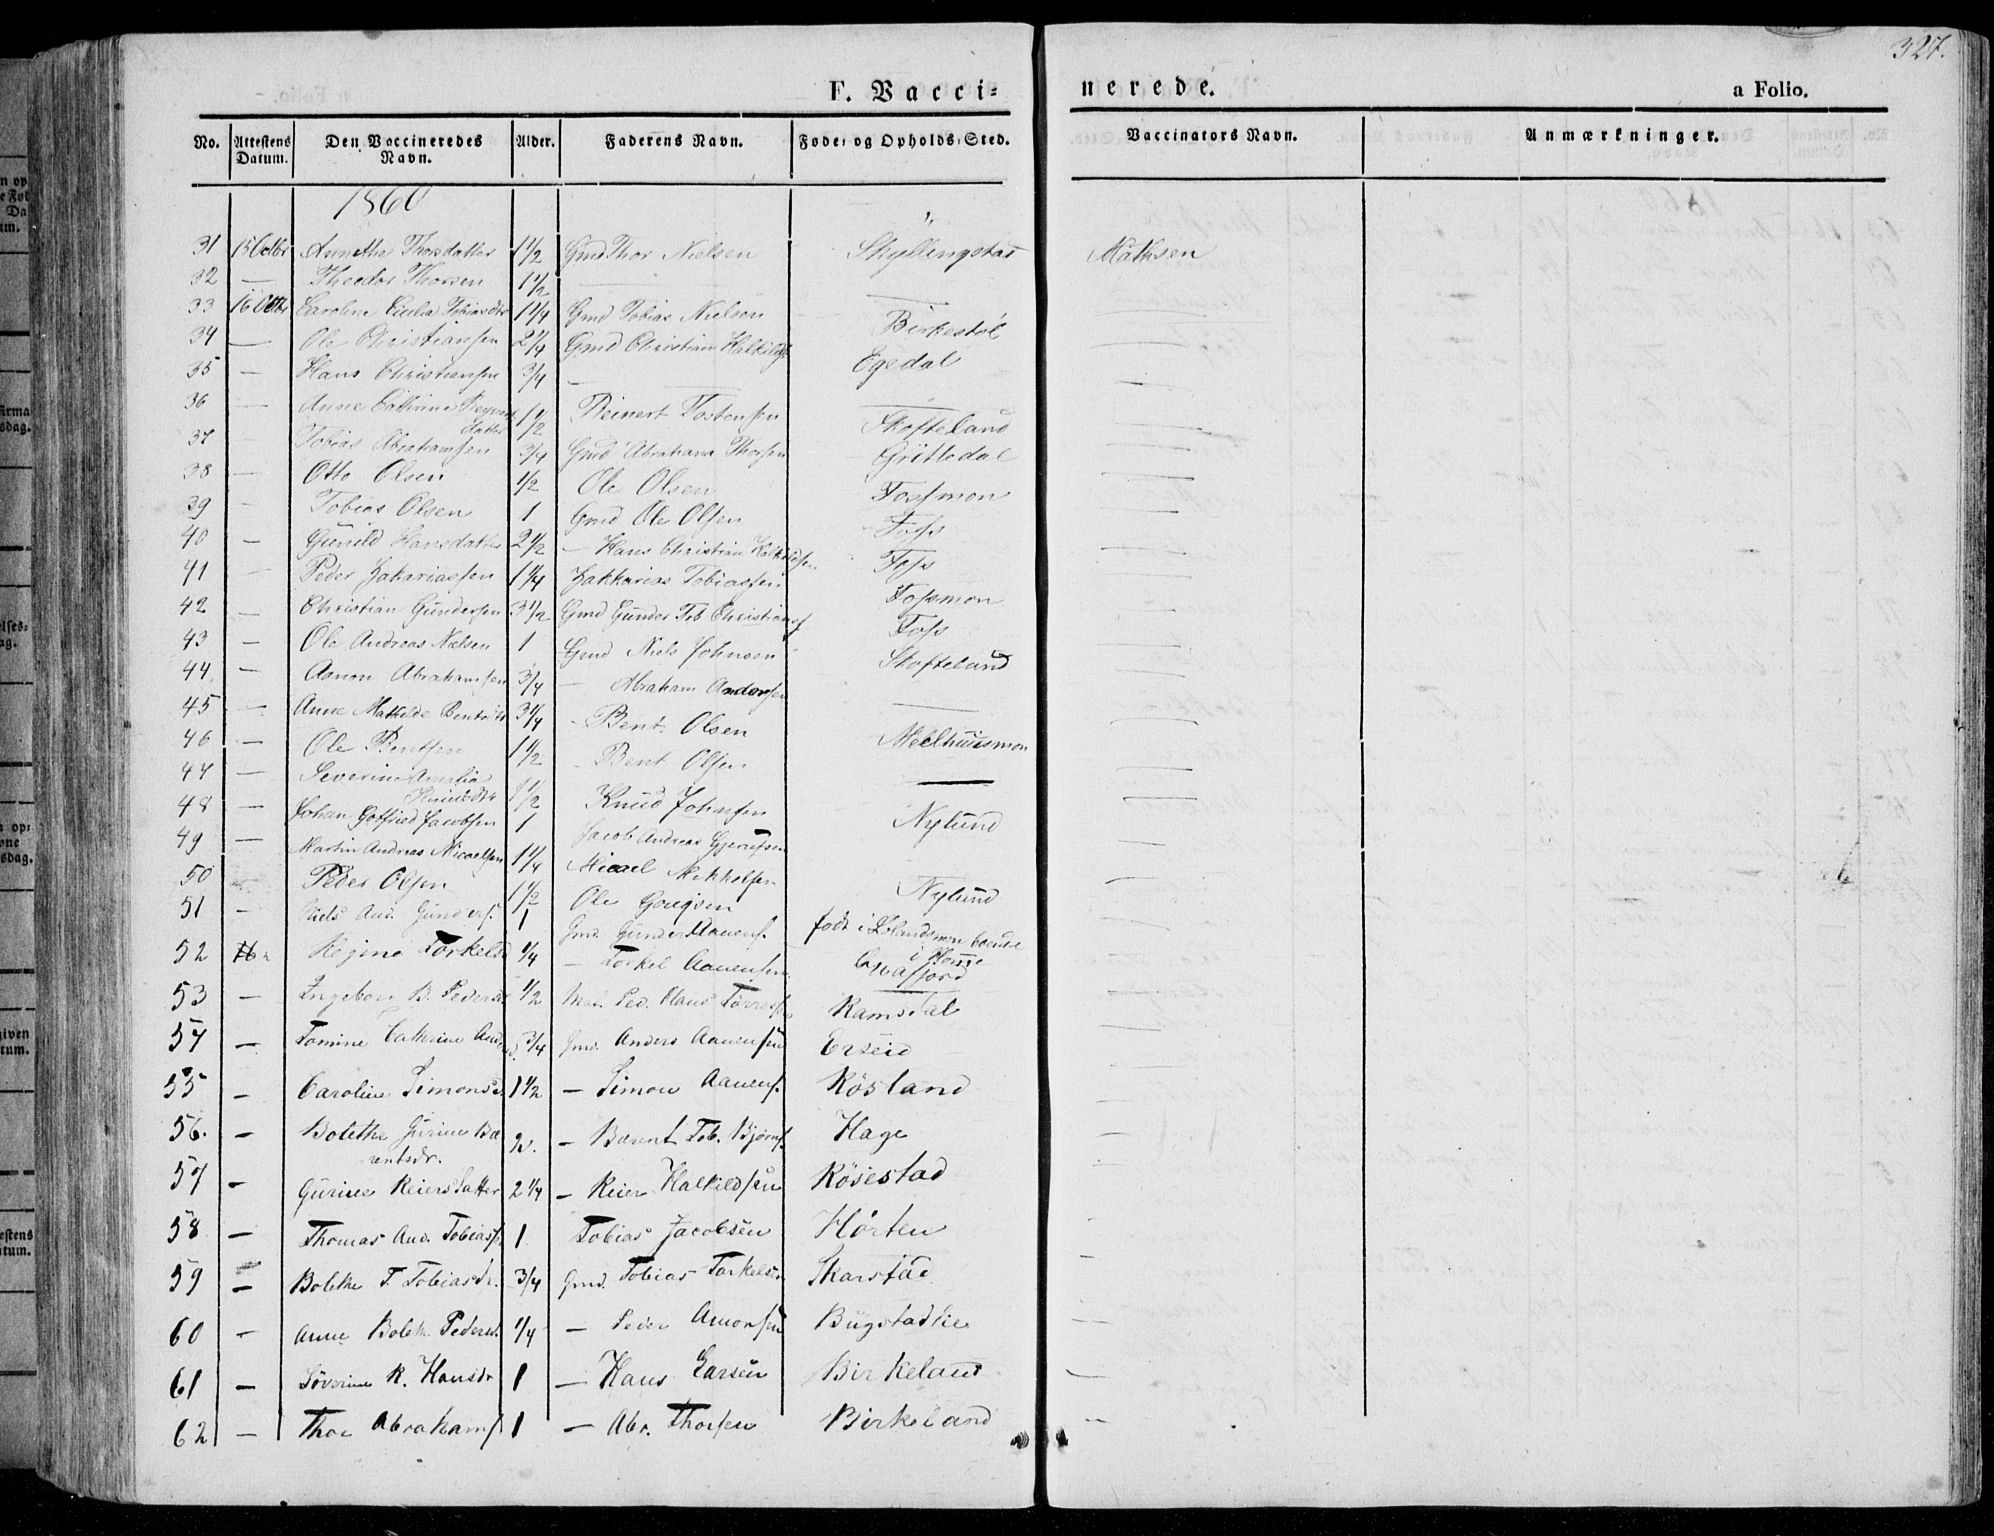 327.
F. Vacci=
nerede.
a Folio.
No. Attestens Datum. Den Vaccineredes Navn. Alder. Faderens Navn. Føde= og Opholds=Sted. Vaccinators Navn. Anmærkninger.
1860
31 15 Octbr Annethe Thorsdatter 1 1/2 Gmd Thor Nielsen Skyllingstad Mathsen
32 — Theodor Thorsen 1 1/2 —
33 16 Octbr Caroline Tobiasdtr 1 1/4 Gmd Tobias Nielsen —
34 — Ole Christiansen 2 1/4 Gmd Christian Halkilds Birkestøl
35 — Hans Christiansen 3/4 — Egedal
36 — Anne Cathrine Reyners datter 1 1/2 Reinert Tostensen —
37 Tobias Abrahamsen 3/4 Gmd Abraham Thorsen Skofteland
38 — Otto Olsen 1/2 Ole Olsen Gritledal
39 — Tobias Olsen 1 Gmd Ole Olsen Fossmon
40 — Gunild Hansdatter 2 1/2 — Hans Christian Halkildsen Foss
41 — Peder Zakariassen 1 1/4 Zakkarias Tobiassen Foss
42 — Christian Gundersen 3 1/2 Gmd Gunder Tob Christians Fossmon
43 — Ole Andreas Nielsen 1 Gmd Niels Johnsen Foss
44. — Aanon Abrahamsen 3/4 — Abraham Andersen Skofteland
45 — Anne Mathilde Bentsdtr 3 1/4 — Bent Olsen —
46 — Ole Bentsen 1 1/2 — Bent Olsen Meelhuusmon
47 — Severine Amalia 1 1/2 Knud Johnsen —
48 — Johan Gotfried Jacobsen 1 Jacob Andreas Nylund
49 — Martin Andreas Nicaelsen 1 1/4 Micael
50 Peder Olsen 1 1/2 Ole Nylund
51 — Niels And. Gunders. 1 Gmd. Gunder Aanens. født i boende i
52 16 Regine Torkelsd 1/4 — Torkel Aanensen
53 — Ingeborg B. Pedersd 1/2 Ped. Hans Ramsdal
54 — Tomine Cathrine Andersd. 3/4 Gmd. Anders Aanensen Erseid
55 — Caroline Simonsd. 1 1/2 — Simon Aanens. Røsland
56. — Bolethe Gurine Barentsdr. 2. — Barent Tob. Bjørns. Hage
57 — Gurine Reiersdatter 2 1/4 — Reier Halkildsen Røsestad
58 — Thomas And. Tobiass. 1 Tobias Jacobsen Hørten
59 — Bolethe T. Tobiasdr. 3/4 Gmd. Tobias Torkelsen Skarstad
60 — Anne Boleth. Pedersd. 1/4 — Peder Amorsen Bugstadlie
61 — Søverine R. Hansdr 1 — Hans Larsen Birkeland
62 — Thor Abrahams. 1 — Abr. Thorsen Birkeland